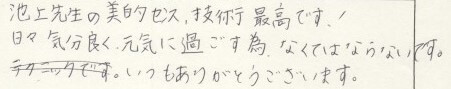 池上先生の美的センス,技術最高です!
日々気分良く、元気に過ごす為、なくてはならないです。
テクニックです。いつもありがとうございます。